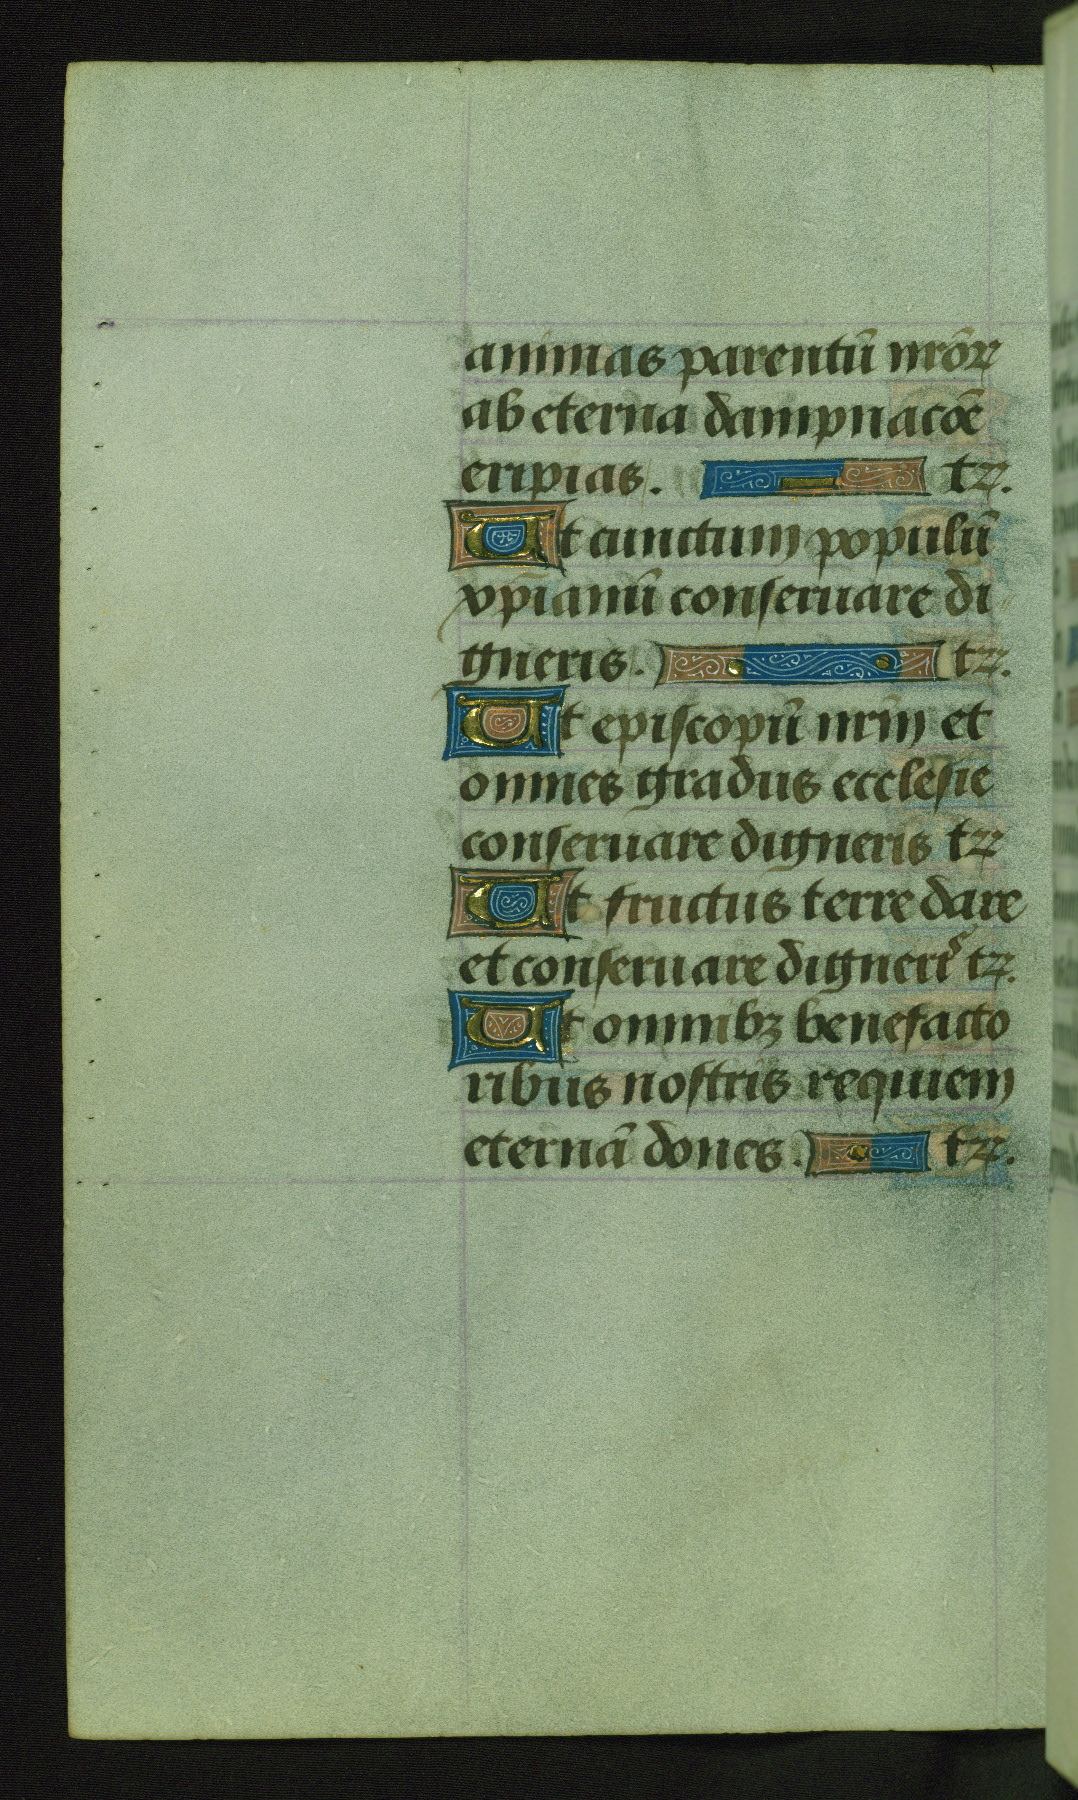 animas parentū nr̄oꝝ
ab eterna dampnacōe
eripias. tꝝ.
Ut cunctum populū
xp̄ianū conseruare di
gneris. tꝝ.
Ut episcopū nr̄m et
omnes gradus ecclesie
conseruare digneris tꝝ
Ut fructus terre dare
et conseruare digner̄s tꝝ.
Ut omnibꝫ benefacto
ribus nostris requiem
eternā dones. tꝝ.